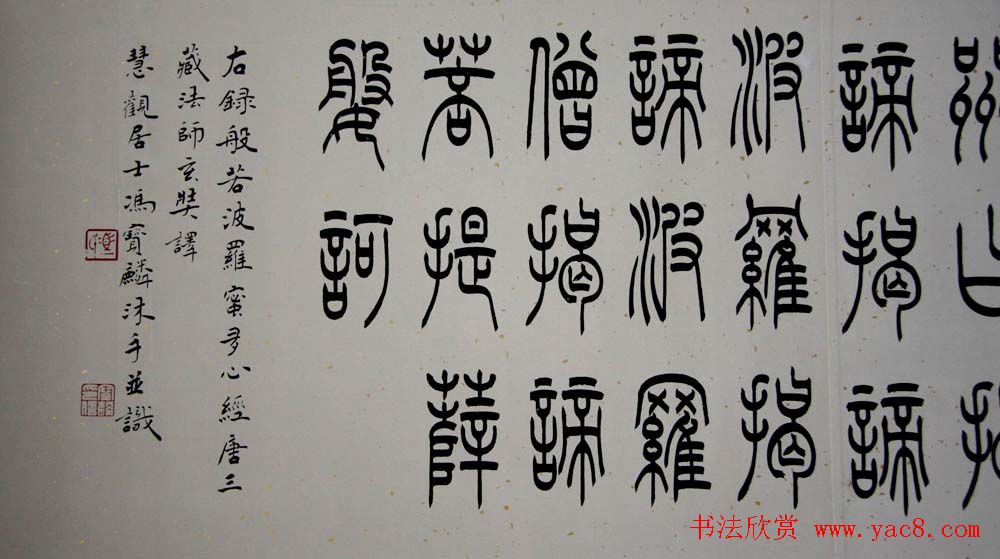 諦揭諦
波羅揭
諦波羅
僧揭諦
菩提薩
婆訶
右録般若波羅蜜多心經唐三
藏法師玄奘譯
慧觀居士馮寶麟沐手並識
书法欣赏 www.yac8.com